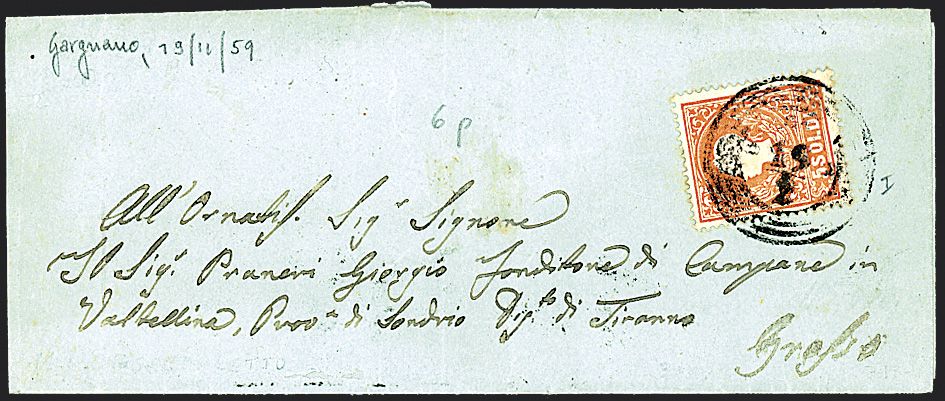 Gargnano, 19/11/59
6 p
5 SOLDI
19
I
All' Ornatiſ. Sigr Signore
Il Sigr Praneri Giorgio Fonditore di Campane in
Valtellina, Prova di Sondrio Digto di Tiranno
Groſso